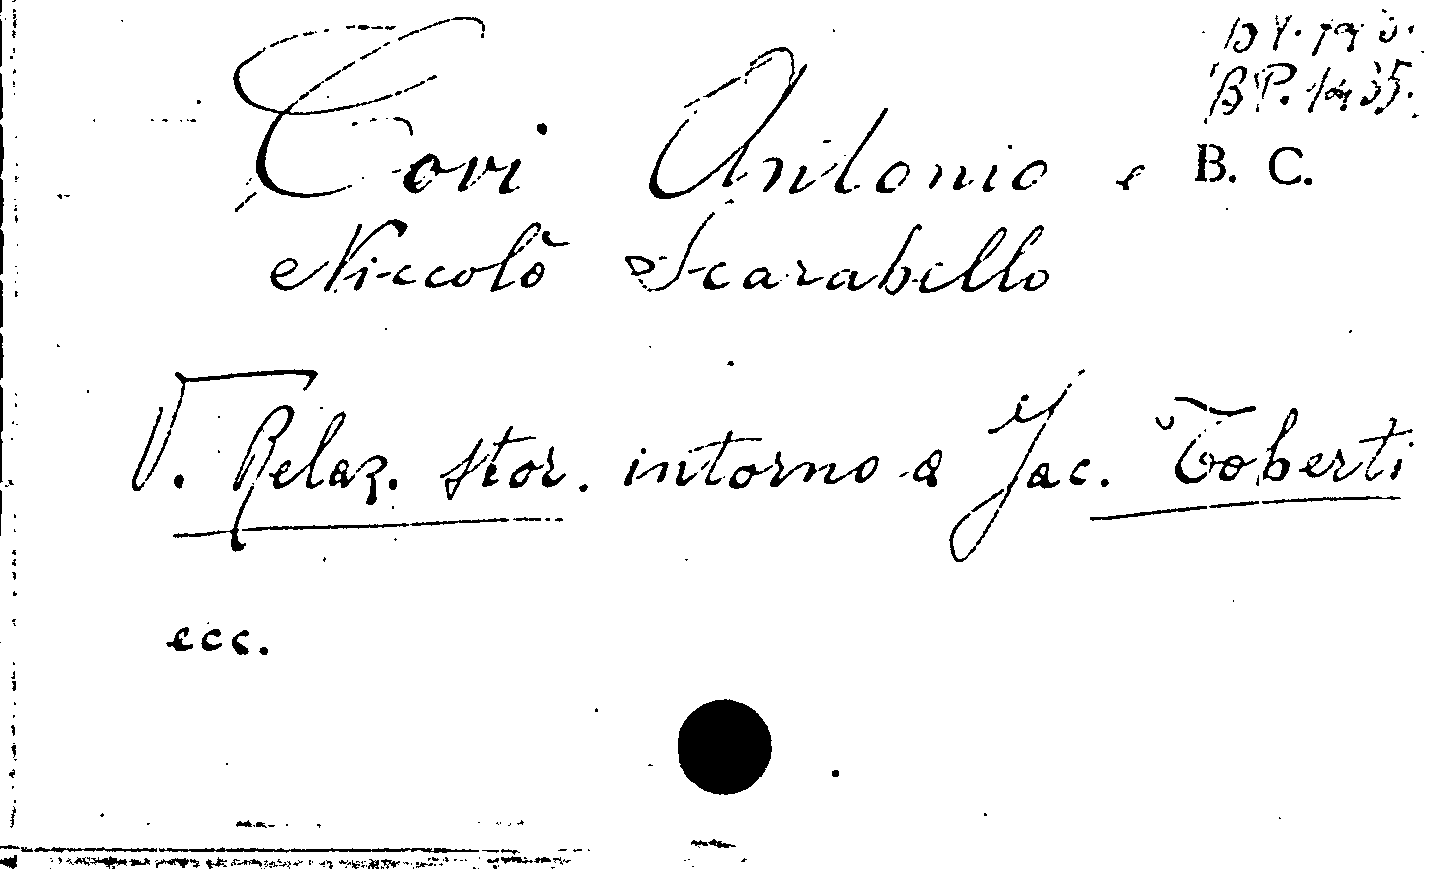 Covi Antonio e
B. C.
Niccolò Scarabello
V. Relaz. stor. intorno a Jac. Toberti
ecc.